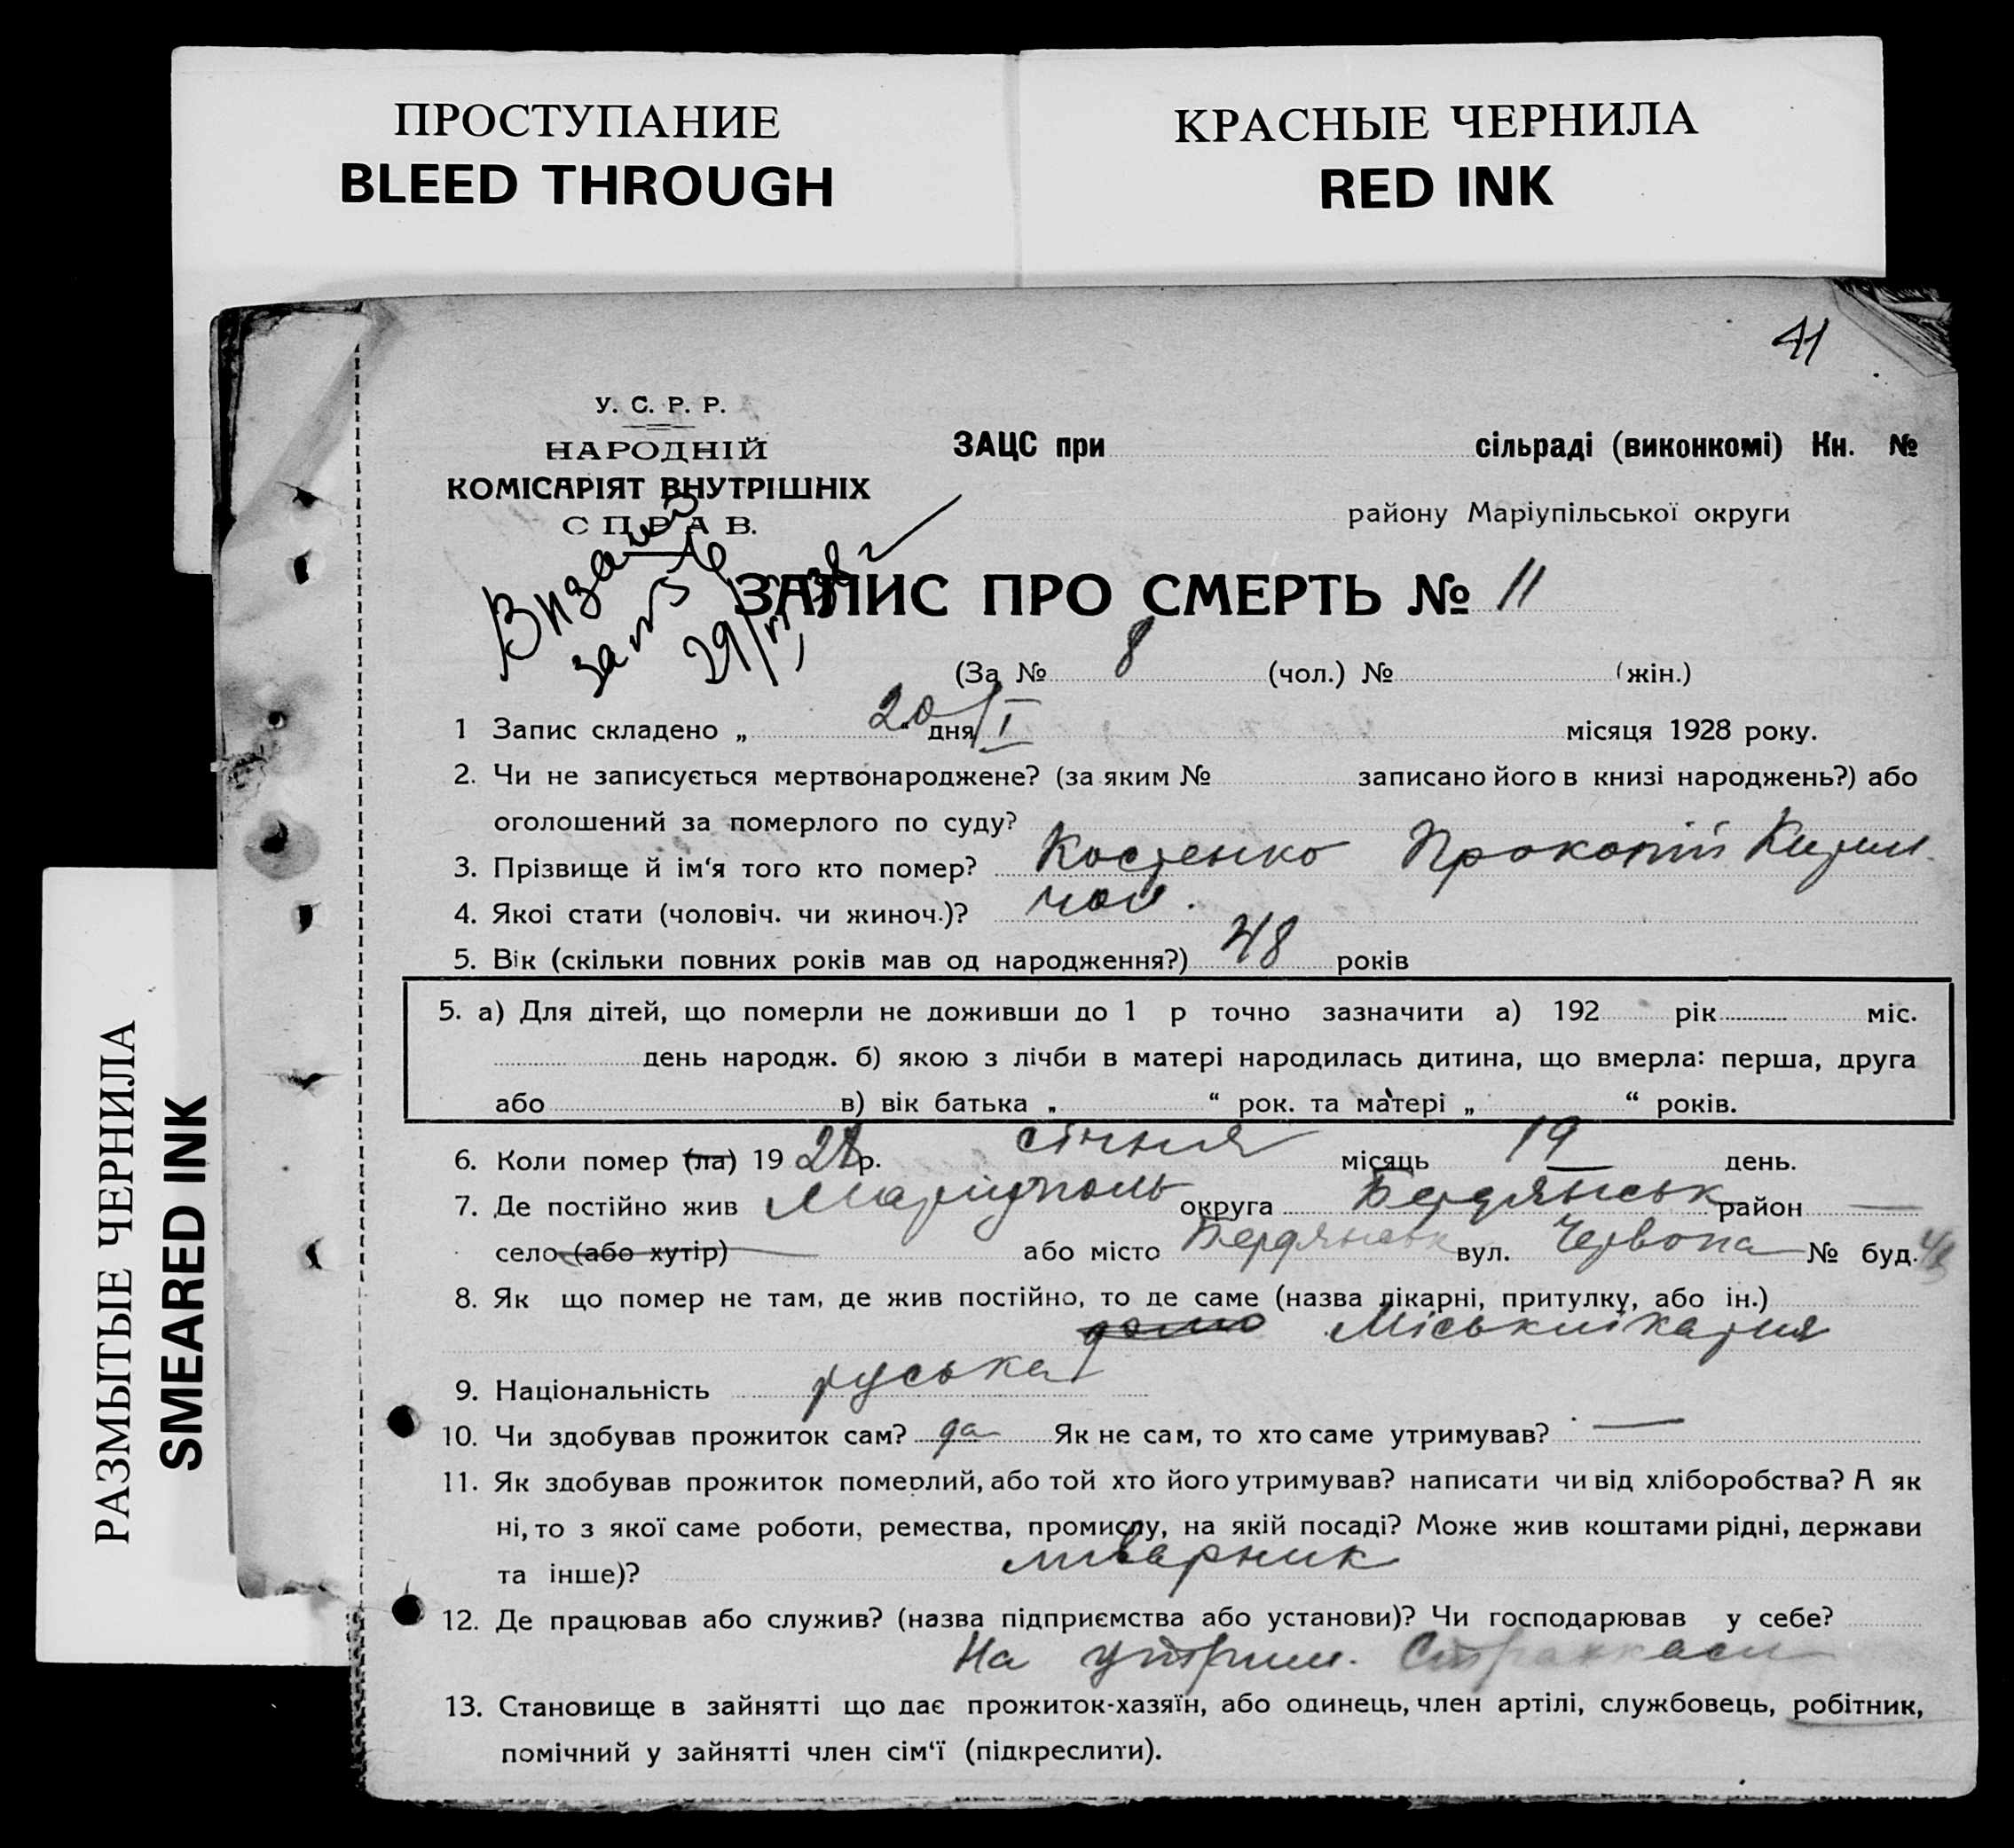 ПРОСТУПАНИЕ
BLEED THROUGH
КРАСНЫЕ ЧЕРНИЛА
RED INK
РАЗМЫТЫЕ ЧЕРНИЛА
SMEARED INK
41
У. С. Р. Р.
НАРОДНІЙ
КОМІСАРІЯТ ВНУТРІШНІХ
СПРАВ.
ЗАЦС при сільраді (виконкомі) Кн. №
району Маріупільської округи
ЗАПИС ПРО СМЕРТЬ № 11
(За № 8 (чол.) № (жін.)
1 Запис складено „ 20 “ дня I місяця 1928 року.
2. Чи не записується мертвонароджене? (за яким № записано його в книзі народжень?) або
оголошений за померлого по суду?
3. Прізвище й ім‘я того кто помер? Костенко Прокопій Кирил.
4. Якоі стати (чоловіч. чи жиноч.)? чол.
5. Вік (скільки повних років мав од народження?) 48 років
5. а) Для дітей, що померли не доживши до 1 р точно зазначити а) 192 рік міс.
день народж. б) якою з лічби в матері народилась дитина, що вмерла: перша, друга
або в) вік батька „ “ рок. та матері „ “ років.
6. Коли помер (ла) 1928 р. січня місяць 19 день.
7. Де постійно жив Маріуполь округа Бердянськ район —
село (або хутір) або місто Бердянськ вул. Червона № буд.
8. Як що помер не там, де жив постійно, то де саме (назва лікарні, притулку, або ін.)
9. Національність руська
10. Чи здобував прожиток сам? да Як не сам, то хто саме утримував? —
11. Як здобував прожиток померлий, або той хто його утримував? написати чи від хліборобства? А як
ні, то з якої саме роботи, ремества, промислу, на якій посаді? Може жив коштами рідні, держави
та інше)? ливарник
12. Де працював або служив? (назва підприємства або установи)? Чи господарював у себе?
На утрим. Страхкаси
13. Становище в зайнятті що дає прожиток-хазяїн, або одинець, член артілі, службовець, робітник,
помічний у зайнятті член сім‘ї (підкреслити).